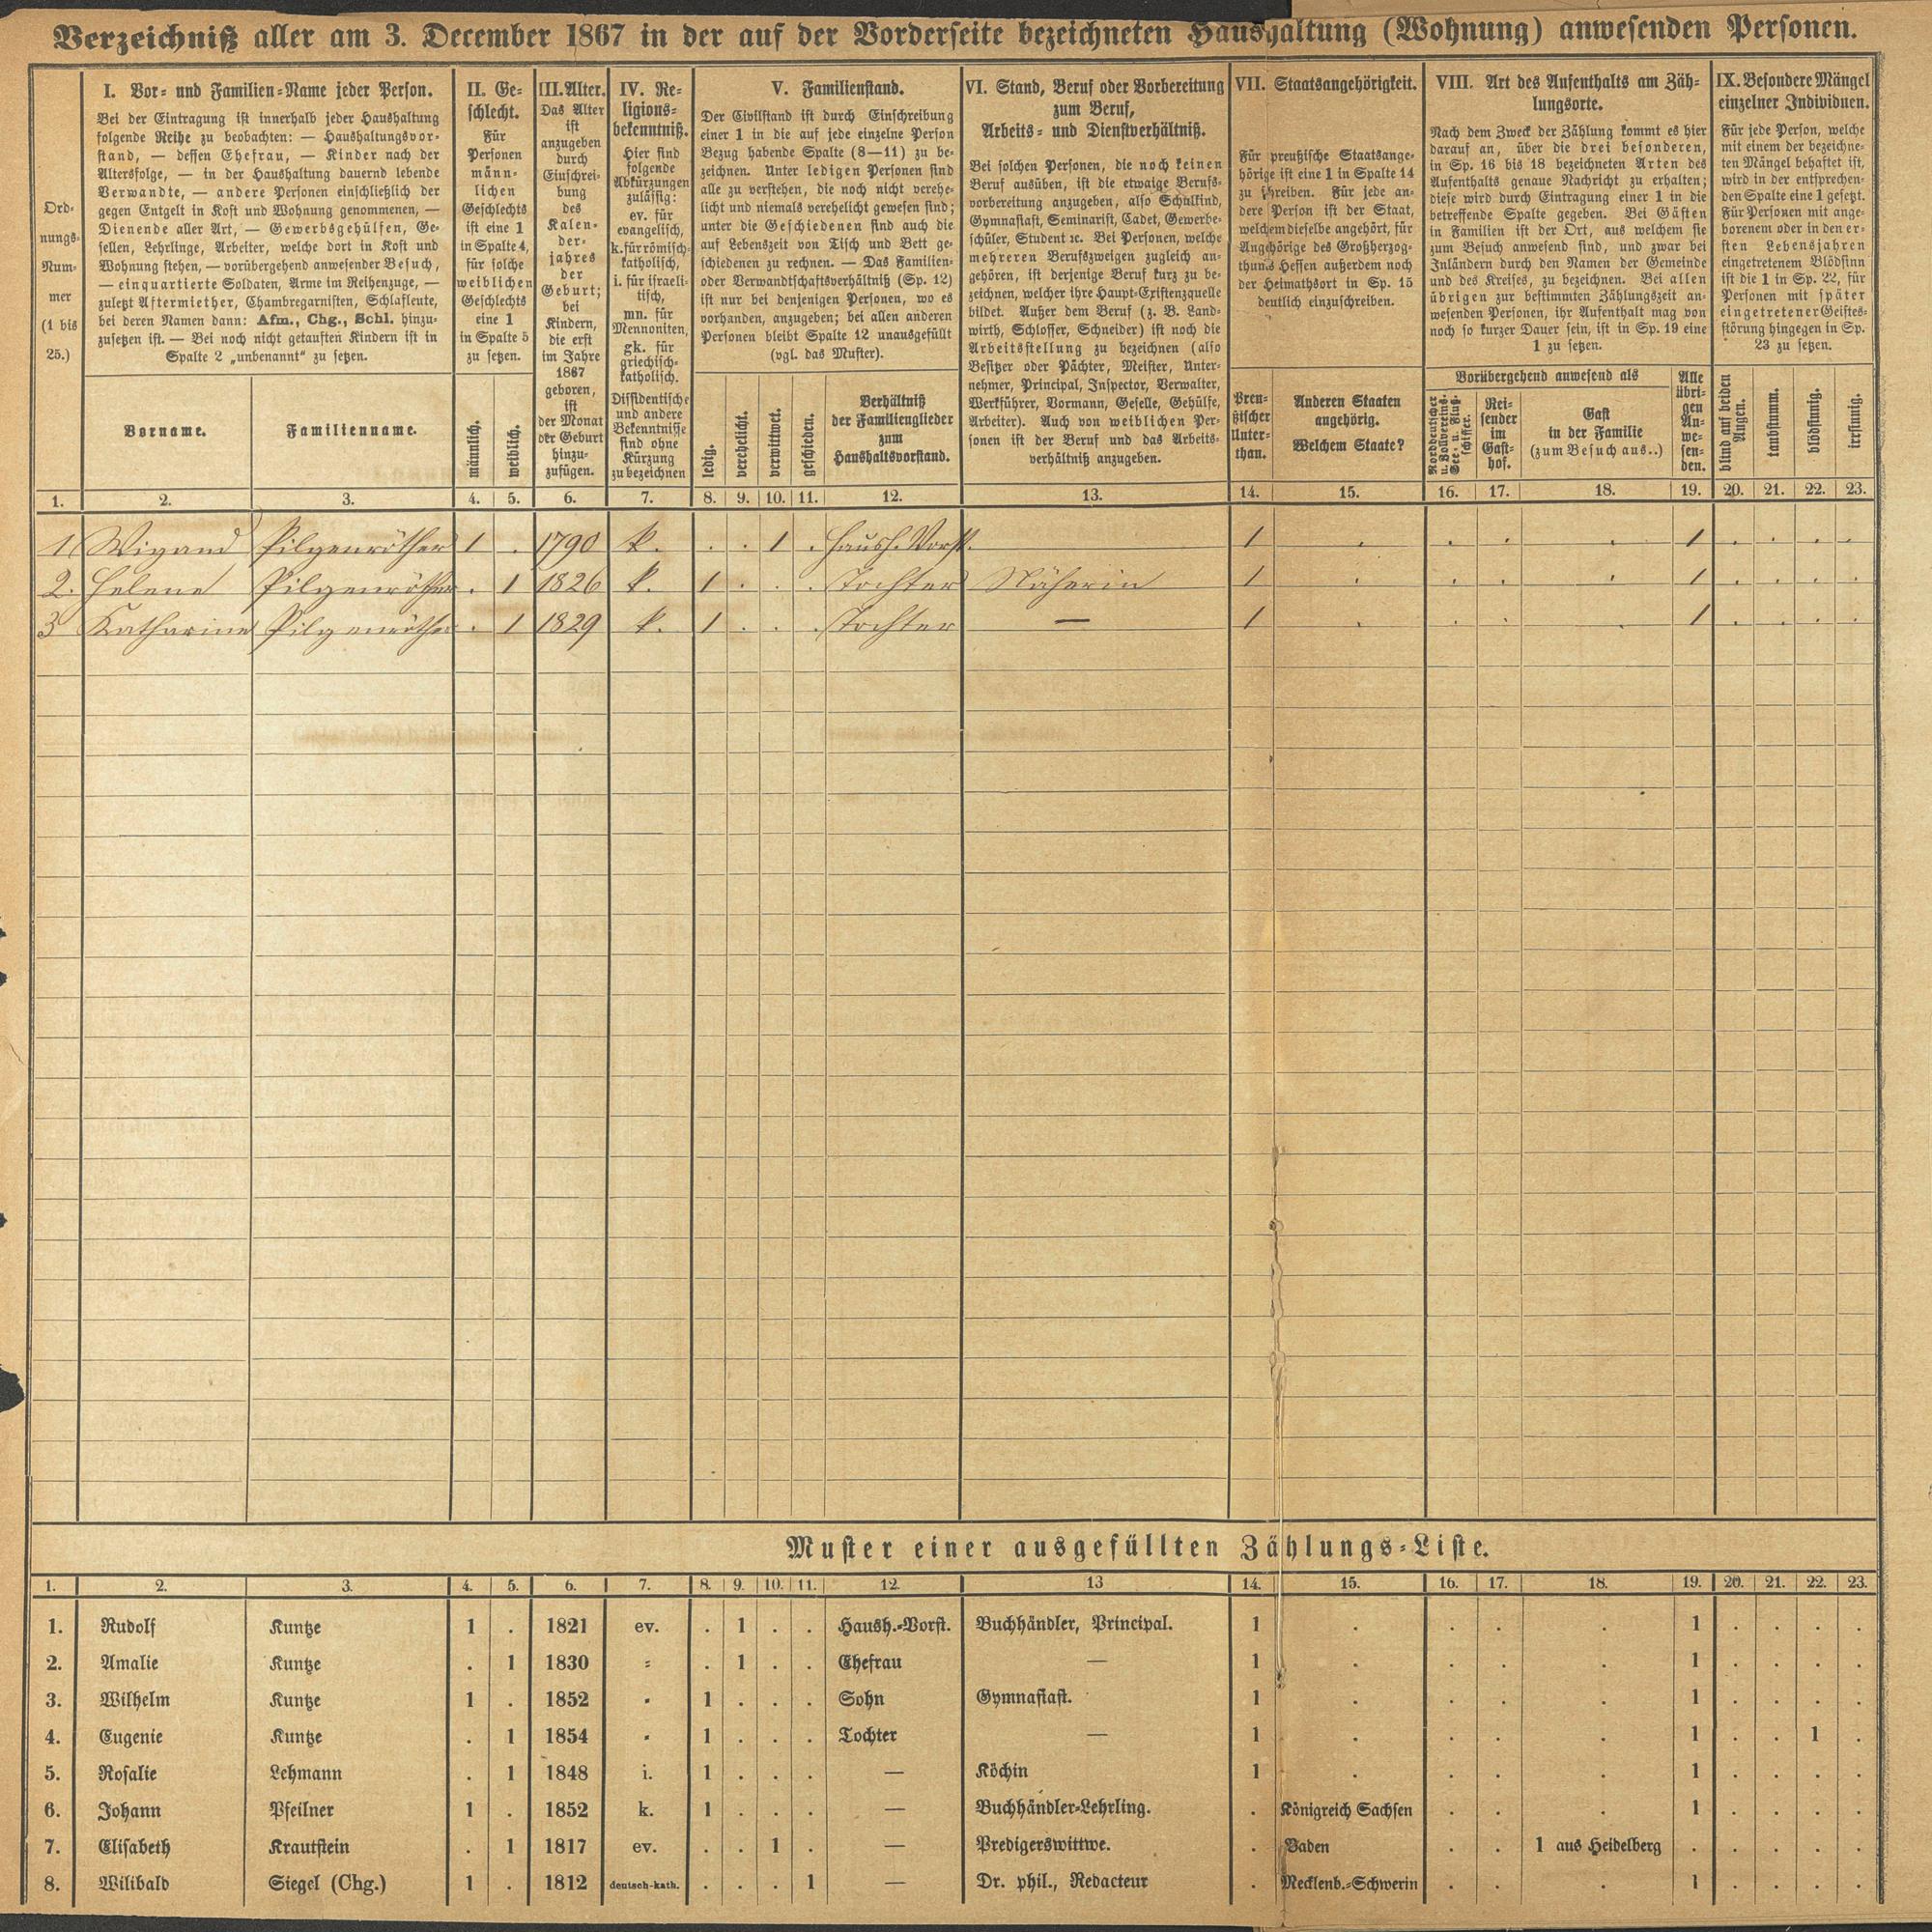 Verzeichniß aller am 3. December 1867 in der auf der Vorderseite bezeichneten Haushaltung (Wohnung) anwesenden Personen.
Ord-
nungs-
Num-
mer
(1 bis
25.)
I. Vor- und Familien-Name jeder Person.
Bei der Eintragung ist innerhalb jeder Haushaltung
folgende Reihe zu beobachten: — Haushaltungsvor-
stand, — dessen Ehefrau, — Kinder nach der
Altersfolge, — in der Haushaltung dauernd lebende
Verwandte, — andere Personen einschließlich der
gegen Entgelt in Kost und Wohnung genommenen, —
Dienende aller Art, — Gewerbsgehülfen, Ge-
sellen, Lehrlinge, Arbeiter, welche dort in Kost und
Wohnung stehen, — vorübergehend anwesender Besuch,
— einquartierte Soldaten, Arme im Reihenzuge, —
zuletzt Aftermiether, Chambregarnisten, Schlafleute,
bei deren Namen dann: Afm., Chg., Schl. hinzu-
zusetzen ist. — Bei noch nicht getauften Kindern ist in
Spalte 2 „unbenannt" zu setzen.
Vorname.
Familienname.
II. Ge-
schlecht.
Für
Personen
männ-
lichen
Geschlechts
ist eine 1
in Spalte 4,
für solche
weiblichen
Geschlechts
eine 1
in Spalte 5
zu setzen.
männlich.
weiblich.
III. Alter.
Das Alter
ist
anzugeben
durch
Einschrei-
bung
des
Kalen-
der-
jahres
der
Geburt;
bei
Kindern,
die erst
im Jahre
1867
geboren,
ist
der Monat
der Geburt
hinzu-
zufügen.
IV. Re-
ligions-
bekenntniß.
Hier sind
folgende
Abkürzungen
zulässig:
ev. für
evangelisch,
k. für römisch-
katholisch,
i. für israeli-
tisch,
mn. für
Mennoniten,
gk. für
griechisch-
katholisch.
Dissidentische
und andere
Bekenntnisse
sind ohne
Kürzung
zu bezeichnen
V. Familienstand.
Der Civilstand ist durch Einschreibung
einer 1 in die auf jede einzelne Person
Bezug habende Spalte (8—11) zu be-
zeichnen. Unter ledigen Personen sind
alle zu verstehen, die noch nicht verehe-
licht und niemals verehelicht gewesen sind;
unter die Geschiedenen sind auch die
auf Lebenszeit von Tisch und Bett ge-
schiedenen zu rechnen. — Das Familien-
oder Verwandtschaftsverhältniß (Sp. 12)
ist nur bei denjenigen Personen, wo es
vorhanden, anzugeben; bei allen anderen
Personen bleibt Spalte 12 unausgefüllt
(vgl. das Muster).
ledig.
verehelicht.
verwittwet.
geschieden.
Verhältniß
der Familienglieder
zum
Haushaltsvorstand.
VI. Stand, Beruf oder Vorbereitung
zum Beruf,
Arbeits- und Dienstverhältniß.
Bei solchen Personen, die noch keinen
Beruf ausüben, ist die etwaige Berufs-
vorbereitung anzugeben, also Schulkind,
Gymnasiast, Seminarist, Cadet, Gewerbe-
schüler, Student ꝛc. Bei Personen, welche
mehreren Berufszweigen zugleich an-
gehören, ist derjenige Beruf kurz zu be-
zeichnen, welcher ihre Haupt-Existenzquelle
bildet. Außer dem Beruf (z. B. Land-
wirth, Schlosser, Schneider) ist noch die
Arbeitsstellung zu bezeichnen (also
Besitzer oder Pächter, Meister, Unter-
nehmer, Principal, Inspector, Verwalter,
Werkführer, Vormann, Geselle, Gehülfe,
Arbeiter). Auch von weiblichen Per-
sonen ist der Beruf und das Arbeits-
verhältniß anzugeben.
VII. Staatsangehörigkeit.
Für preußische Staatsange-
hörige ist eine 1 in Spalte 14
zu schreiben. Für jede an-
dere Person ist der Staat,
welchem dieselbe angehört, für
Angehörige des Großherzog-
thums Hessen außerdem noch
der Heimathsort in Sp. 15
deutlich einzuschreiben.
Preu-
ßischer
Unter-
than.
Anderen Staaten
angehörig.
Welchem Staate?
VIII. Art des Aufenthalts am Zäh-
lungsorte.
Nach dem Zweck der Zählung kommt es hier
darauf an, über die drei besonderen,
in Sp. 16 bis 18 bezeichneten Arten des
Aufenthalts genaue Nachricht zu erhalten;
diese wird durch Eintragung einer 1 in die
betreffende Spalte gegeben. Bei Gästen
in Familien ist der Ort, aus welchem sie
zum Besuch anwesend sind, und zwar bei
Inländern durch den Namen der Gemeinde
und des Kreises, zu bezeichnen. Bei allen
übrigen zur bestimmten Zählungszeit an-
wesenden Personen, ihr Aufenthalt mag von
noch so kurzer Dauer sein, ist in Sp. 19 eine
1 zu setzen.
Vorübergehend anwesend als
Norddeutscher
u. Zollvereins-
See- u. Fluß-
schiffer.
Rei-
sender
im
Gast-
hof.
Gast
in der Familie
(zum Besuch aus..)
Alle
übri-
gen
An-
we-
sen-
den.
IX. Besondere Mängel
einzelner Individuen.
Für jede Person, welche
mit einem der bezeichne-
ten Mängel behaftet ist,
wird in der entsprechen-
den Spalte eine 1 gesetzt.
Für Personen mit ange-
borenem oder in den er-
sten Lebensjahren
eingetretenem Blödsinn
ist die 1 in Sp. 22, für
Personen mit später
eingetretener Geistes-
störung hingegen in Sp.
23 zu setzen.
blind auf beiden
Augen.
taubstumm.
blödsinnig.
irrsinnig.
1. 2. 3. 4. 5. 6. 7. 8. 9. 10. 11. 12. 13. 14. 15. 16. 17. 18. 19. 20. 21. 22. 23.
1 Wigand Pilgenröther 1 . 1790 k. . . 1 . Haush. Vorst. 1 . . . . 1 . . . .
2. Helene Pilgenröther . 1 1826 k. 1 . . . Tochter Näherin 1 . . . . 1 . . . .
3 Katharine Pilgenröther . 1 1829 k. 1 . . . Tochter — 1 . . . . 1 . . . .
Muster einer ausgefüllten Zählungs-Liste.
1. 2. 3. 4. 5. 6. 7. 8. 9. 10. 11. 12. 13 14. 15. 16. 17. 18. 19. 20. 21. 22. 23.
1. Rudolf Kuntze 1 . 1821 ev. . 1 . . Haush.-Vorst. Buchhändler, Principal. 1 . . . . 1 . . . .
2. Amalie Kuntze . 1 1830 = . 1 . . Ehefrau — 1 . . . . 1 . . . .
3. Wilhelm Kuntze 1 . 1852 " 1 . . . Sohn Gymnasiast. 1 . . . . 1 . . . .
4. Eugenie Kuntze . 1 1854 " 1 . . . Tochter — 1 . . . . 1 . . 1 .
5. Rosalie Lehmann . 1 1848 i. 1 . . . — Köchin 1 . . . . 1 . . . .
6. Johann Pfeilner 1 . 1852 k. 1 . . . — Buchhändler-Lehrling. . Königreich Sachsen . . . 1 . . . .
7. Elisabeth Krautstein . 1 1817 ev. . . 1 . — Predigerswittwe. . Baden . . 1 aus Heidelberg . . . . .
8. Wilibald Siegel (Chg.) 1 . 1812 deutsch-kath. . . . 1 — Dr. phil., Redacteur . Mecklenb.-Schwerin . . . 1 . . . .